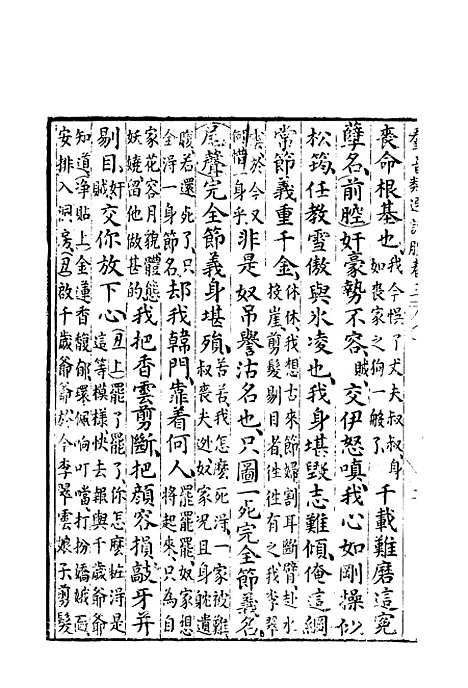 喪命根基也我今悞了丈夫叔叔身如喪家之狗一般了千載難磨這寃
孽名前腔奸豪勢不容賊交伊怒嗔我心如剛操似
松筠任教雪傲與氷凌也我身堪毀志難傾俺這綱
常節義重千金休休我想古來節婦割耳斷臂赴水投崖剪髮剔目者徃徃有之我李翠雲於今又何惜一身乎非是奴吊譽沽名也只圖一死完全節義名
尾聲完全節義身堪殞若若我怎麽死淂一家被難叔喪夫逃奴家况且身躭遺腹若還死了全淂一身節名却我韓門靠着何人罷罷罷奴家想將起來只為自
家花容月貌體態妖嬈留他做甚的我把香雲剪斷把顔容損敲牙并
剔目奸賊交你放下心丑上罷了罷了你怎麽粧淂是這等模樣快去報與千歲爺爺
知道淨貼上金蓮香馥郁環佩响叮噹打扮嬌娥面安排入洞房丑啟千歲爺爺於今李翠雲娘子剪髮